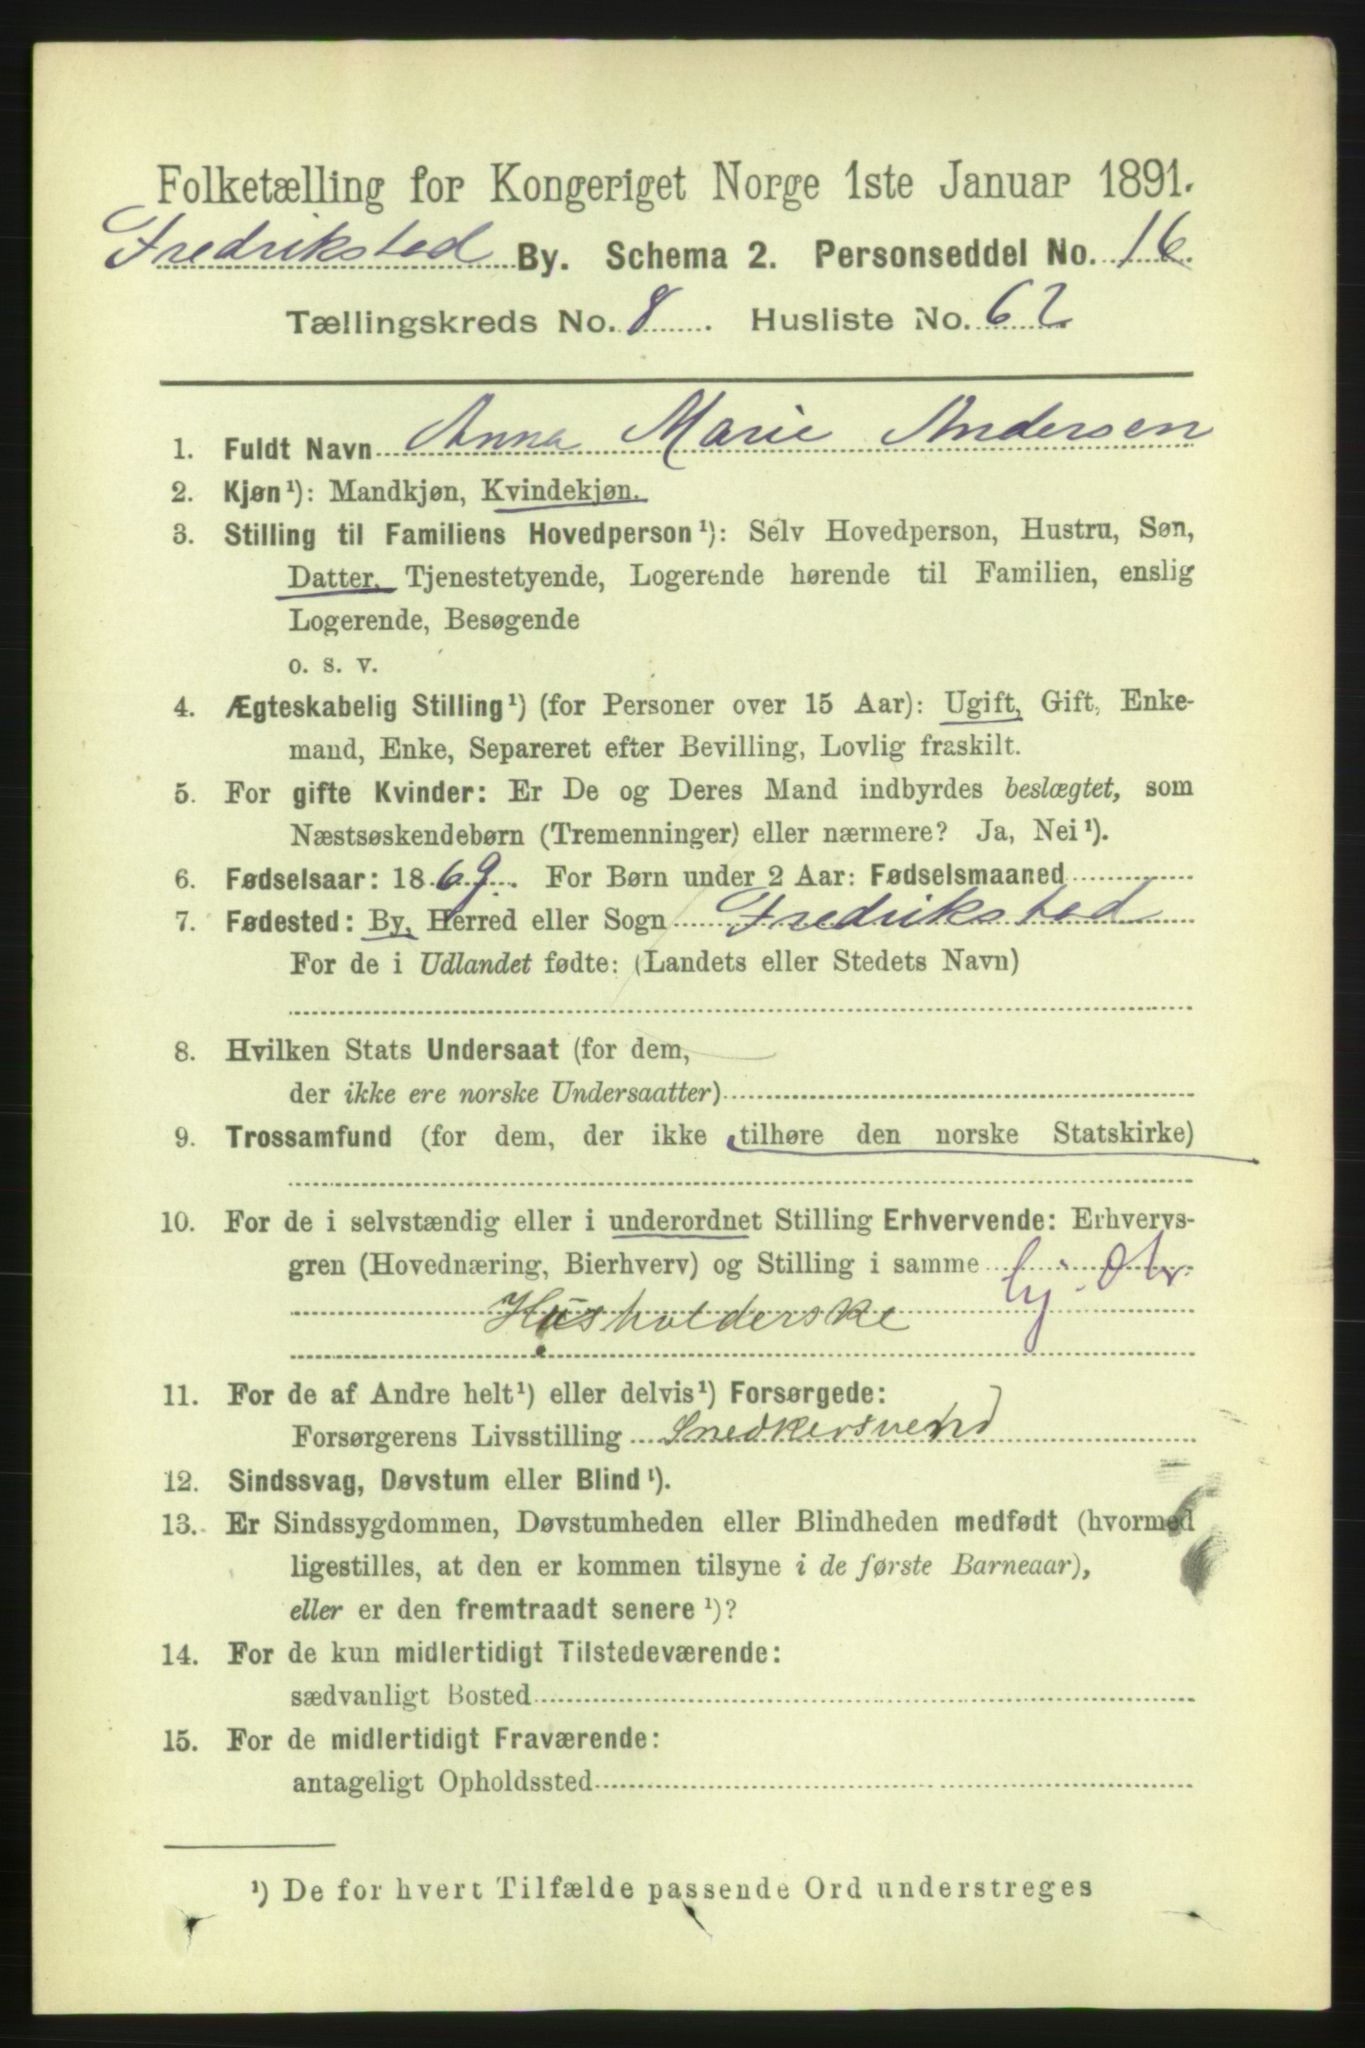 Folketælling for Kongeriget Norge 1ste Januar 1891.
Fredrikstad By. Schema 2. Personseddel No. 16.
Tællingskreds No. 8. Husliste No. 62.
1. Fuldt Navn Anna Marie Andersen
2. Kjøn¹): Mandkjøn, Kvindekjøn.
3. Stilling til Familiens Hovedperson¹): Selv Hovedperson, Hustru, Søn,
Datter, Tjenestetyende, Logerende hørende til Familien, enslig
Logerende, Besøgende
o. s. v.
4. Ægteskabelig Stilling¹) (for Personer over 15 Aar): Ugift, Gift, Enke-
mand, Enke, Separeret efter Bevilling, Lovlig fraskilt.
5. For gifte Kvinder: Er De og Deres Mand indbyrdes beslægtet, som
Næstsøskendebørn (Tremenninger) eller nærmere? Ja, Nei¹).
6. Fødselsaar: 1869. For Børn under 2 Aar: Fødselsmaaned
7. Fødested: By, Herred eller Sogn Fredrikstad
For de i Udlandet fødte: (Landets eller Stedets Navn)
8. Hvilken Stats Undersaat (for dem,
der ikke ere norske Undersaatter)
9. Trossamfund (for dem, der ikke tilhøre den norske Statskirke)
10. For de i selvstændig eller i underordnet Stilling Erhvervende: Erhvervs-
gren (Hovednæring, Bierhverv) og Stilling i samme
Husholderske
11. For de af Andre helt¹) eller delvis¹) Forsørgede:
Forsørgerens Livsstilling Snedkersvend
12. Sindssvag, Døvstum eller Blind¹).
13. Er Sindssygdommen, Døvstumheden eller Blindheden medfødt (hvormed
ligestilles, at den er kommen tilsyne i de første Barneaar),
eller er den fremtraadt senere¹)?
14. For de kun midlertidigt Tilstedeværende:
sædvanligt Bosted
15. For de midlertidigt Fraværende:
antageligt Opholdssted
¹) De for hvert Tilfælde passende Ord understreges